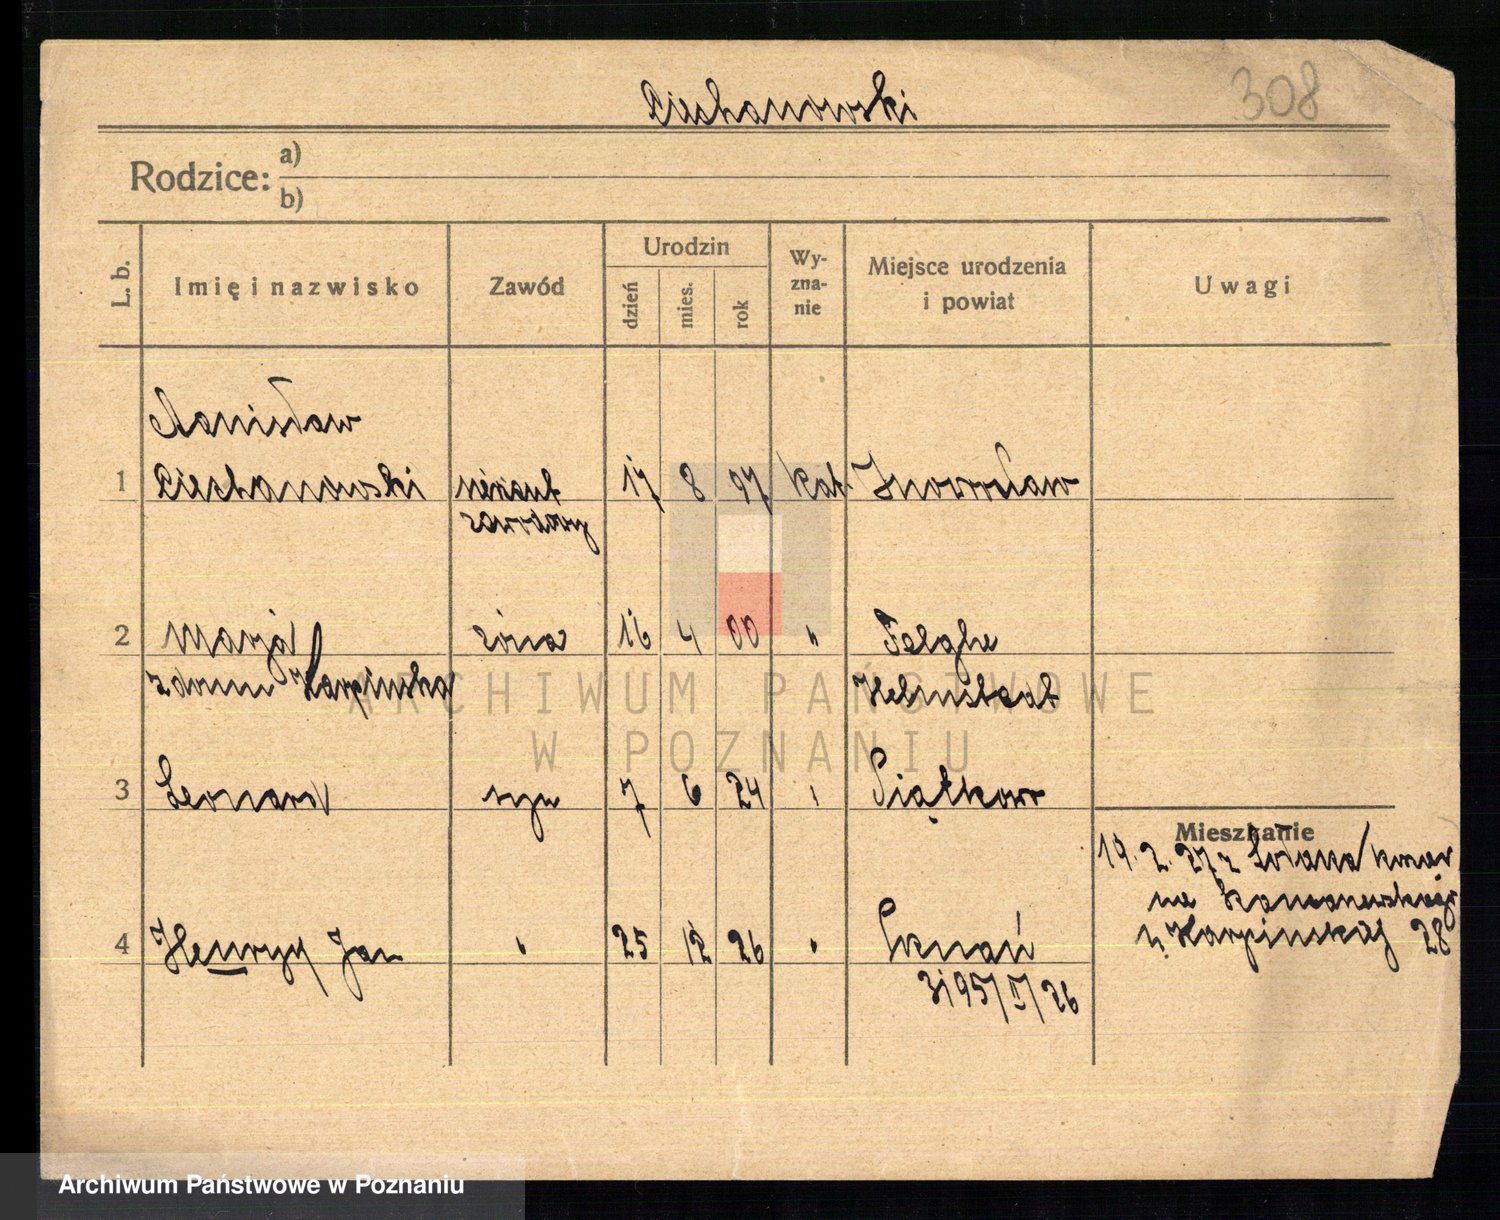 Ciechanowski
308
Rodzice: a)
b)
L. b.
Imię i nazwisko
Zawód
Urodzin
dzień
mies.
rok
Wy-
zna-
nie
Miejsce urodzenia
i powiat
Uwagi
Stanisław
1 Ciechanowski sierżant 17 8 97 kat. Inowrocław
zawodowy
2 Marja żona 16 4 00 "
z domu Karpińska
3 Leonard syn 7 6 24 Piątkowo
Mieszkanie
19. 2. 27 z Sołacza
na
4 Henryk Jan " 25 12 26 " Poznań
Karpińskiej 28
3195/II/26
ARCHIWUM PAŃSTWOWE
W POZNANIU
Archiwum Państwowe w Poznaniu